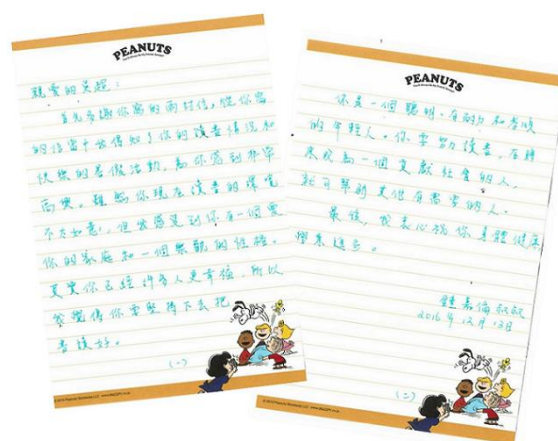 PEANUTS
親愛的吳超:
首先多謝你寫的兩封信,從你寫
的信當中我得知了你的讀書情況和
快樂的暑假活動,為你感到非常
高興。雖然你現在讀書的環境
不太如意,但我感覺到你有一個愛
你的家庭和一個樂觀的性格。
其實你已經比許多人更幸福,所以
我覺得你要堅持下去把
書讀好。
(一)
PEANUTS
你是一個聰明、有耐力和孝順
的年輕人。你要努力讀書,在將
來成為一個貢獻社會的人,
就可幫到其他有需要的人。
最後,我衷心祝你身體健康
學業進步。
鍾嘉倫叔叔
2016年12月13日
(二)